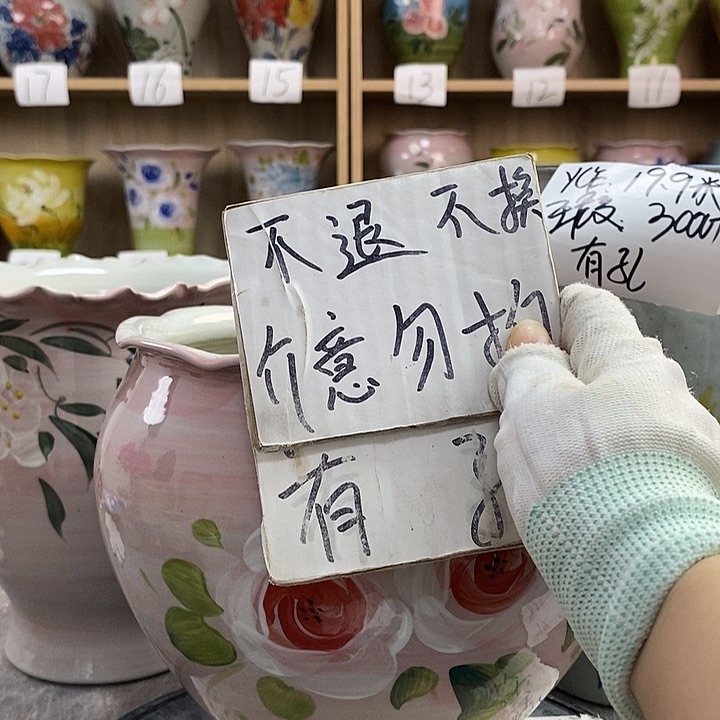 17
16
15
13
12
11
不退不换
介意勿拍
有
YCE: 19.9米
有孔